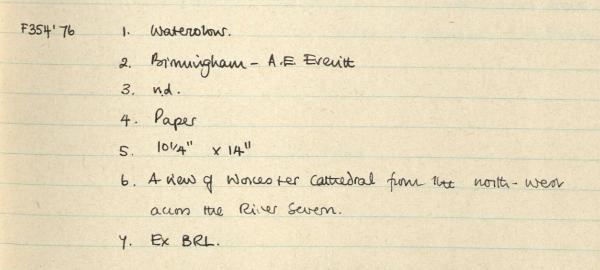 F354'76 1. Watercolour.
2. Birmingham - A.E. Everitt
3. n.d.
4. Paper
5. 10 1/4" x 14"
6. A view of Worcester Cathedral from the north-west
across the River Severn.
7. Ex BRL.